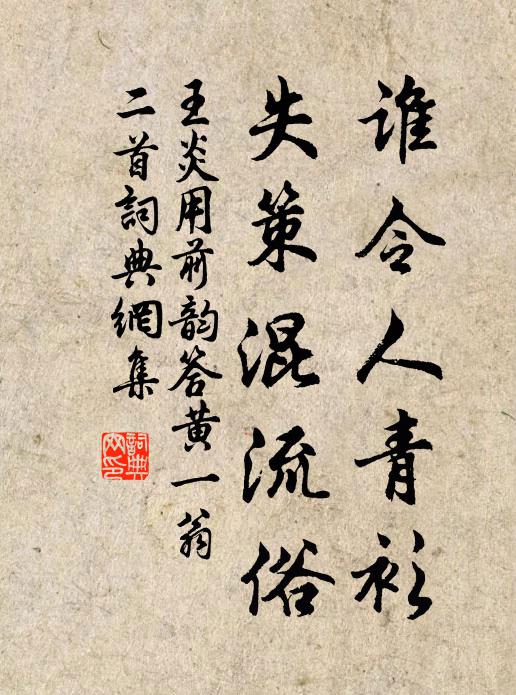 谁令人青衫
失策混流俗
王炎用前韵答黄一翁
二首詞典網集
詞典
网印